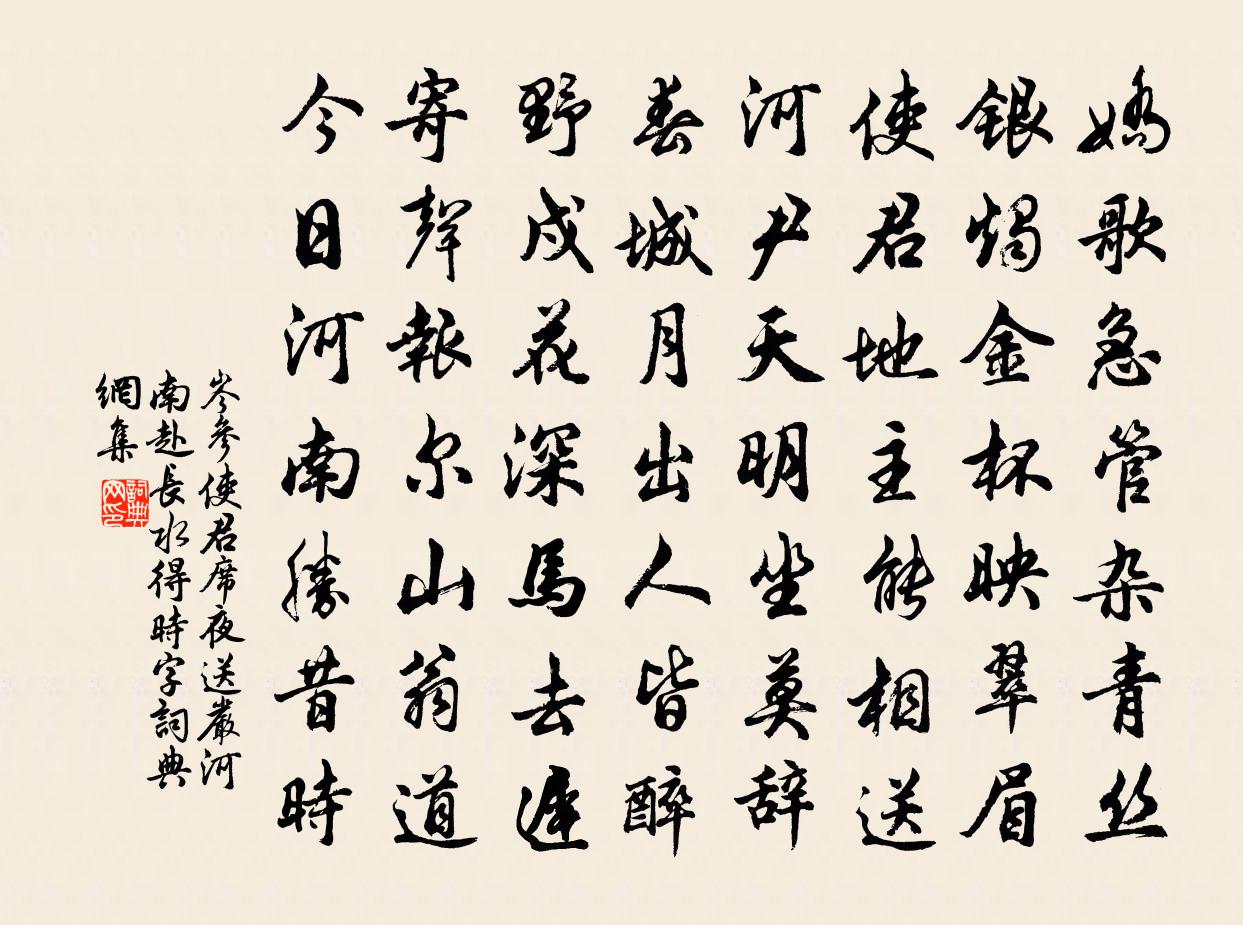 嬌歌急管杂青丝
銀燭金杯映翠眉
使君地主能相送
河尹天明坐莫辞
春城月出人皆醉
野戍花深馬去遲
寄聲報尔山翁道
今日河南勝昔時
岑參使君席夜送嚴河
南赴長水得時字詞典
網集
詞典
网印